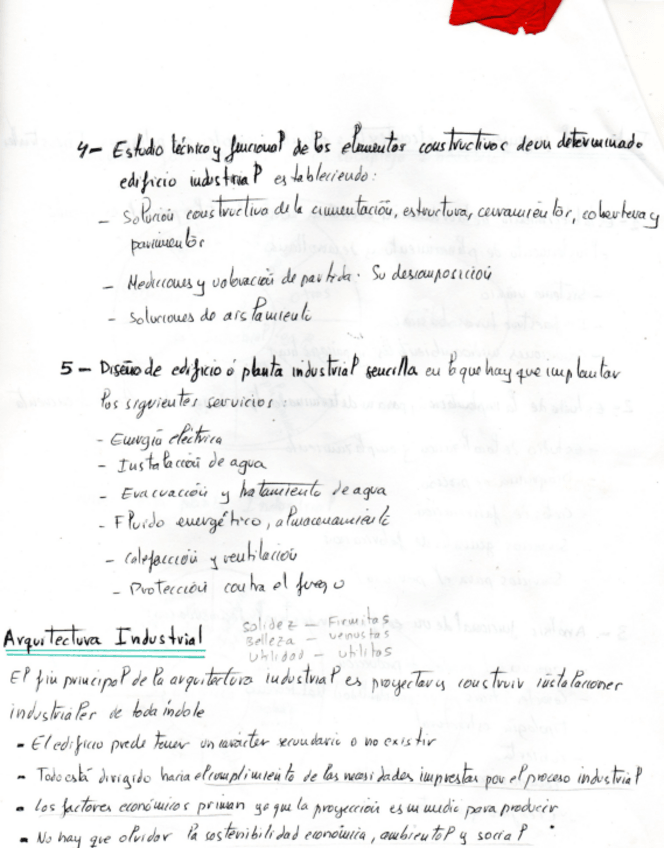 4- Estudio técnico y funcional de los elementos constructivos de un determinado
edificio industrial estableciendo:
- Solución constructiva de la cimentación, estructura, cerramientos, cobertura y
pavimentos
- Mediciones y valoración de partida. Su descomposición
- Soluciones de aislamiento
5- Diseño de edificio ó planta industrial sencilla en lo que hay que implantar
los siguientes servicios:
- Energía eléctrica
- Instalación de agua
- Evacuación y tratamiento de agua
- Fluido energético, almacenamiento
- Calefacción y ventilación
- Protección contra el fuego
Arquitectura Industrial
solidez - Firmitas
Belleza - venustas
utilidad - utilitas
El fin principal de la arquitectura industrial es proyectar y construir instalaciones
industriales de toda índole
- El edificio puede tener un carácter secundario o no existir
- Todo está dirigido hacia el cumplimiento de las necesidades impuestas por el proceso industrial
- Los factores económicos priman ya que la proyección es un medio para producir.
- No hay que olvidar la sostenibilidad económica, ambiental y social